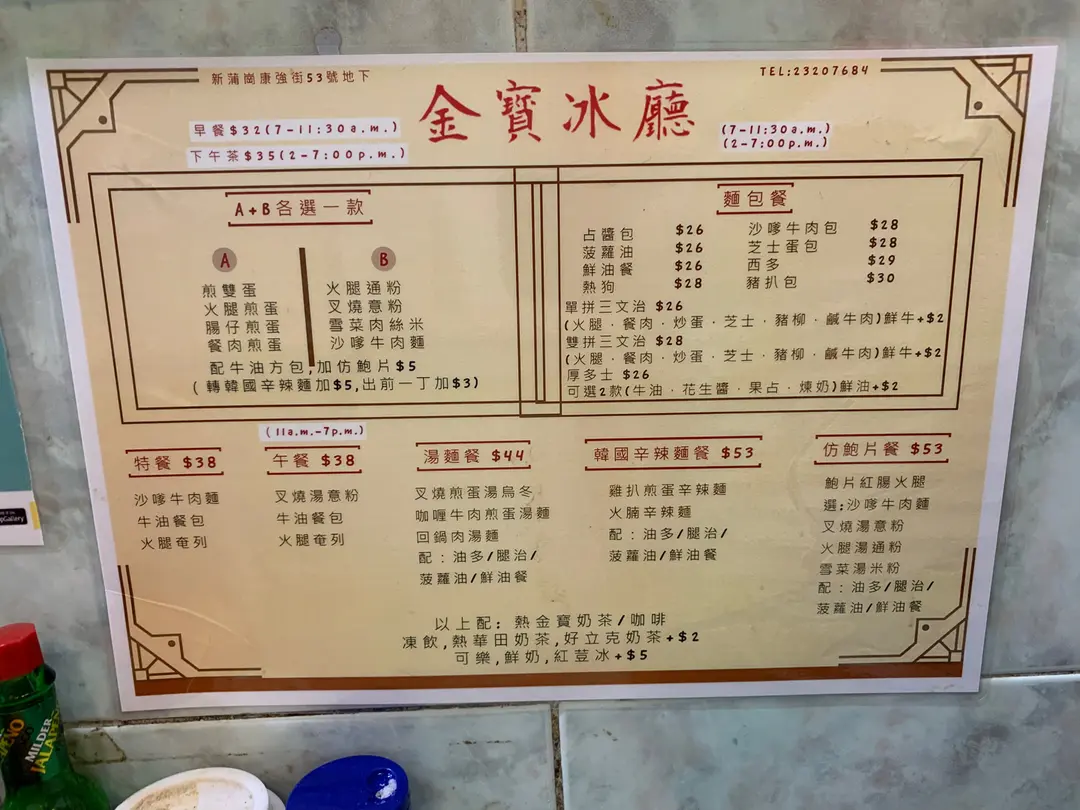 新蒲崗康強街53號地下
TEL:23207684
金寶冰廳
早餐$32(7-11:30a.m.)
下午茶$35(2-7:00p.m.)
(7-11:30a.m.)
(2-7:00p.m.)
A+B各選一款
A
煎雙蛋
火腿煎蛋
腸仔煎蛋
餐肉煎蛋
B
火腿通粉
叉燒意粉
雪菜肉絲米
沙嗲牛肉麵
配牛油方包,加仿鮑片$5
(轉韓國辛辣麵加$5,出前一丁加$3)
麵包餐
占醬包 $26
菠蘿油 $26
鮮油餐 $26
熱狗 $28
沙嗲牛肉包 $28
芝士蛋包 $28
西多 $29
豬扒包 $30
單拼三文治 $26
(火腿．餐肉．炒蛋．芝士．豬柳．鹹牛肉)鮮牛+$2
雙拼三文治 $28
(火腿．餐肉．炒蛋．芝士．豬柳．鹹牛肉)鮮牛+$2
厚多士 $26
可選2款(牛油．花生醬．果占．煉奶)鮮油+$2
特餐 $38
沙嗲牛肉麵
牛油餐包
火腿奄列
(11a.m.-7p.m.)
午餐 $38
叉燒湯意粉
牛油餐包
火腿奄列
湯麵餐 $44
叉燒煎蛋湯烏冬
咖喱牛肉煎蛋湯麵
回鍋肉湯麵
配：油多/腿治/
菠蘿油/鮮油餐
韓國辛辣麵餐 $53
雞扒煎蛋辛辣麵
火腩辛辣麵
配：油多/腿治/
菠蘿油/鮮油餐
仿鮑片餐 $53
鮑片紅腸火腿
選:沙嗲牛肉麵
叉燒湯意粉
火腿湯通粉
雪菜湯米粉
配：油多/腿治/
菠蘿油/鮮油餐
以上配：熱金寶奶茶/咖啡
凍飲,熱華田奶茶,好立克奶茶+$2
可樂,鮮奶,紅荳冰+$5
MILDER